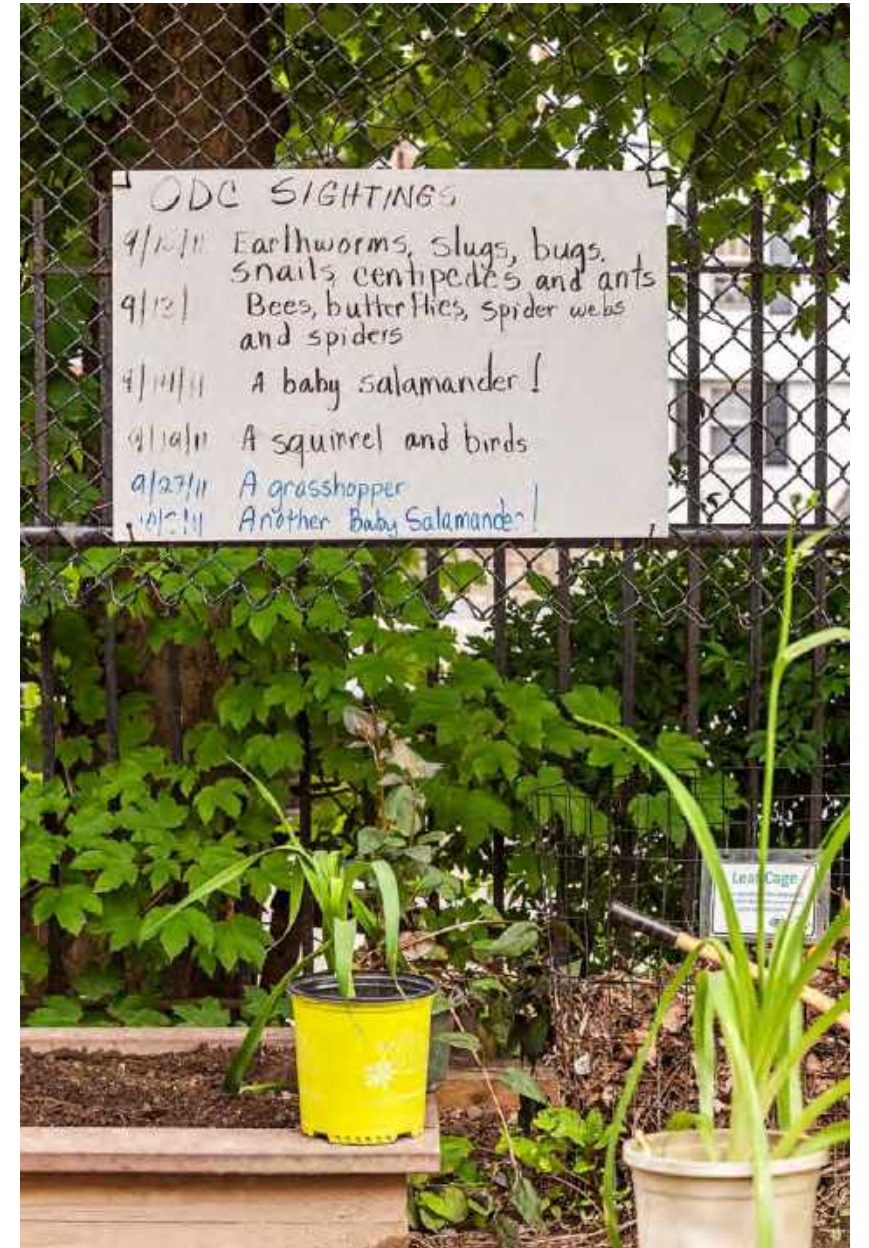 ODC SIGHTINGS
Earthworms, slugs, bugs,
snails, centipedes and ants
Bees, butterflies, spider webs
and spiders
A baby salamander!
A squirrel and birds
9/27/11 A grasshopper
Another Baby Salamander!
Leaf Cage